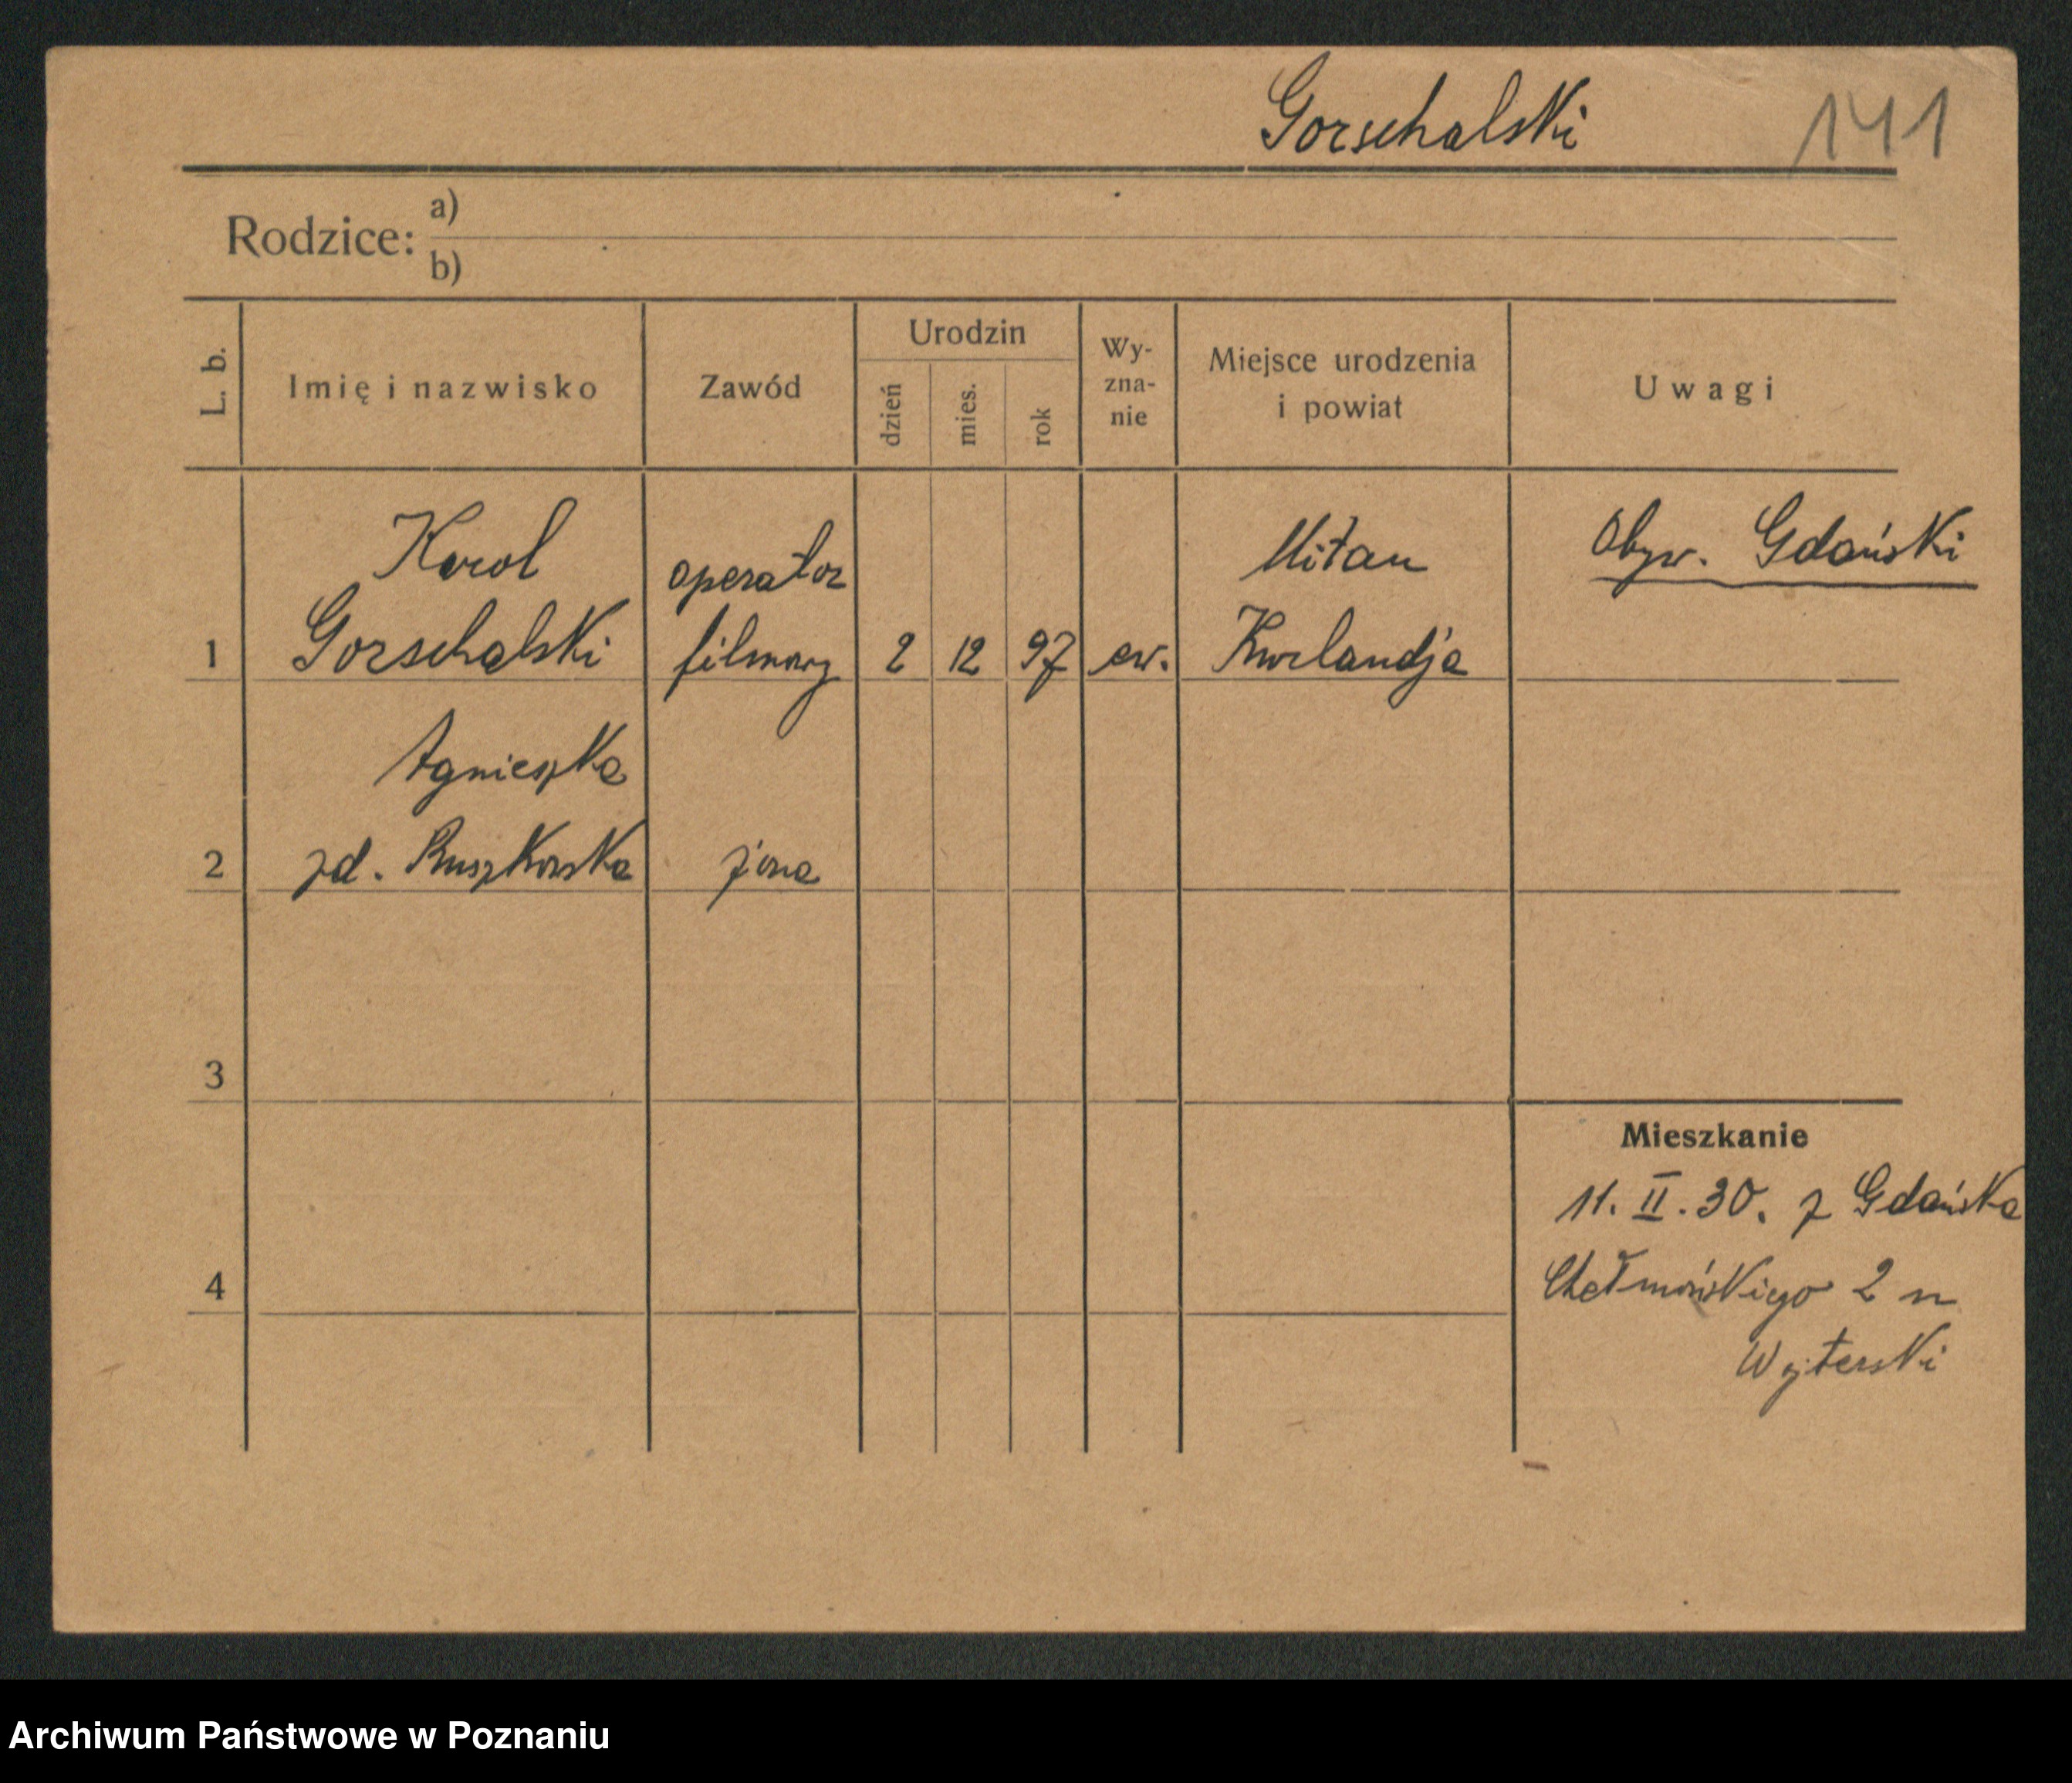 Gorschalski 141
Rodzice: a)
b)
L. b. Imię i nazwisko Zawód Urodzin dzień mies. rok Wy-zna-nie Miejsce urodzenia i powiat Uwagi
Karol operator Mitau Obyw. Gdański
1 Gorschalski filmowy 2 12 97 ew. Kurlandja
Agnieszka
2 zd. Ruszkowska żona
3
Mieszkanie
11. II. 30. z Gdańska
4 Chełmońskiego 2 n
Wojterski
Archiwum Państwowe w Poznaniu